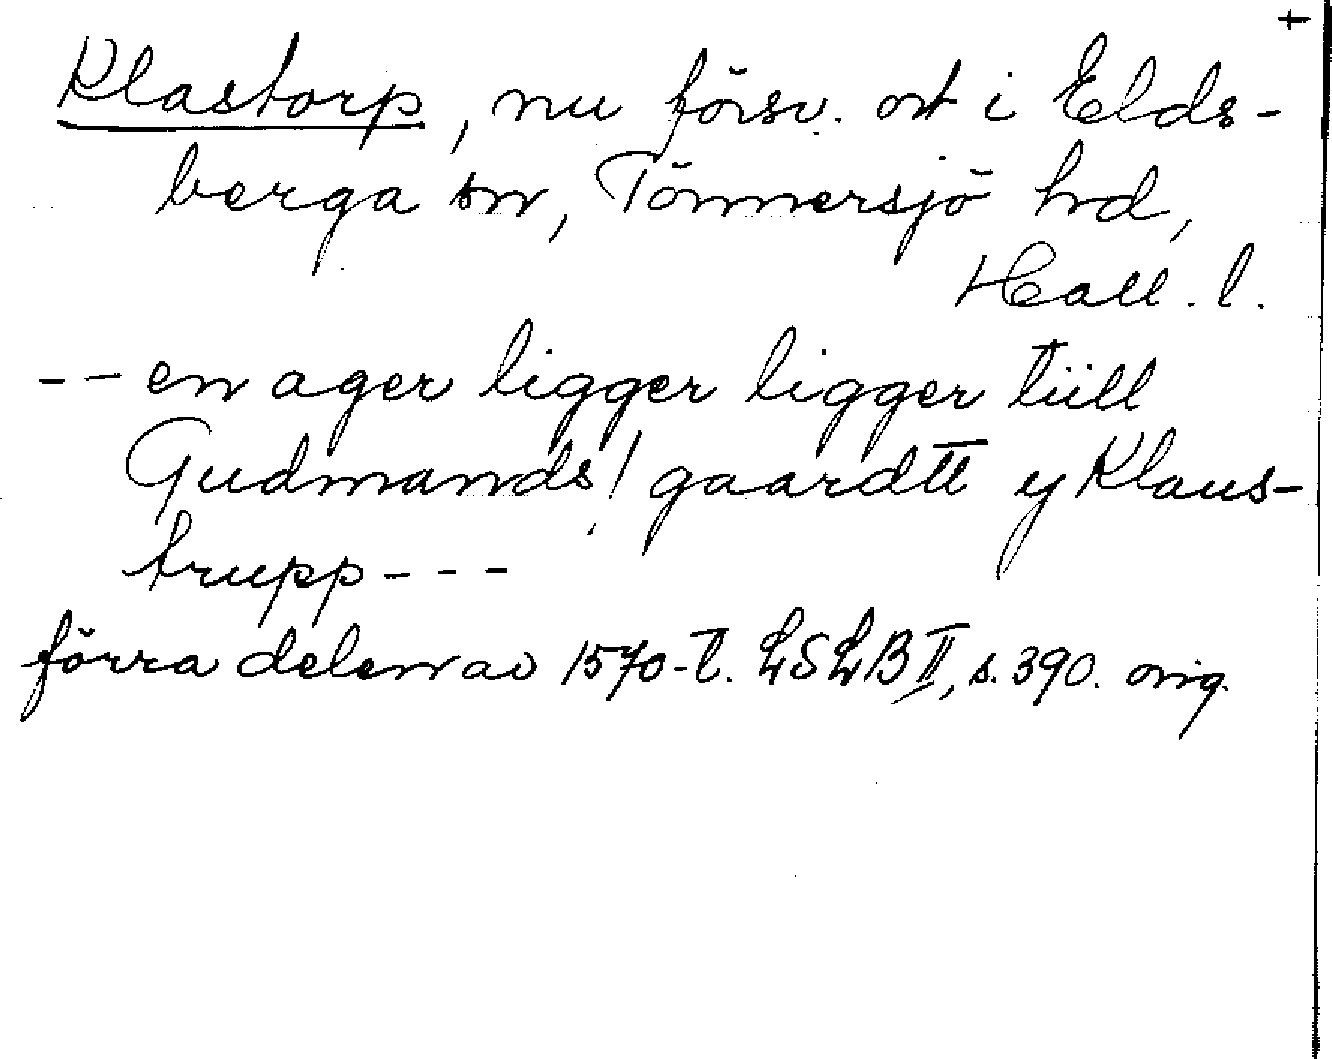 +
Klastorp, nu försv. ort i Elds-
berga sn, Tönnersjö hd,
Hall. l.
-- en ager ligger ligger tiill
Gudmands! gaardtt y Klaus-
trupp---
förra delen av 1570-t. LSLB II, s. 390. orig.